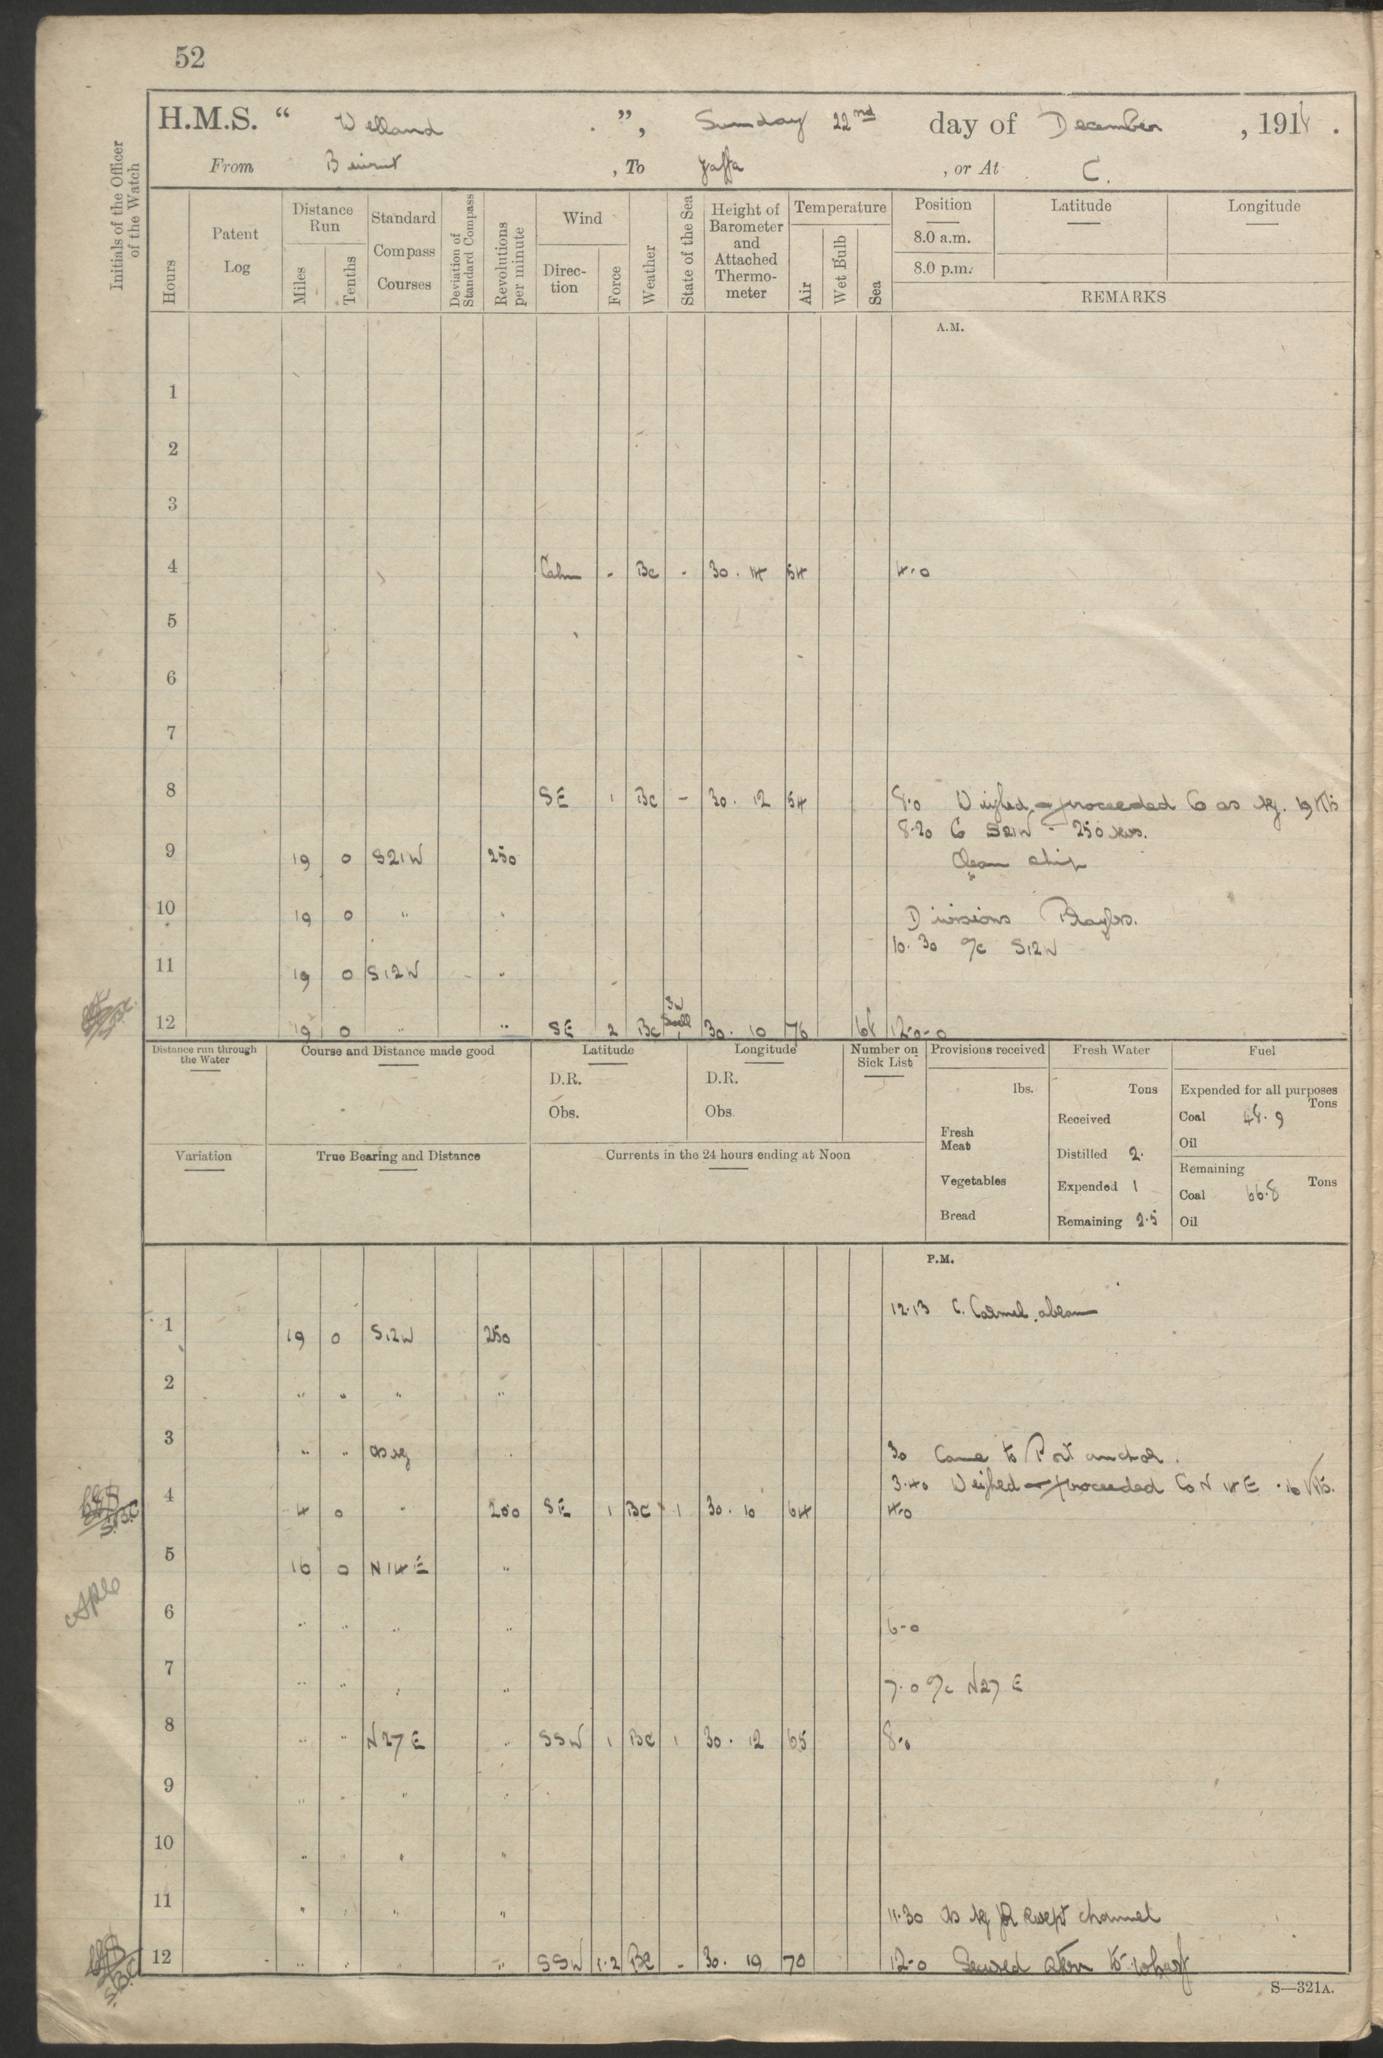 52
H.M.S. “ Welland . ”, Sunday 22nd day of December , 1918 .
From Beirut , To Jaffa , or At C.
Initials of the Officer of the Watch
Hours
Patent Log
Distance Run
Miles
Tenths
Standard Compass Courses
Deviation of Standard Compass
Revolutions per minute
Wind
Direc-tion
Force
Weather
State of the Sea
Height of Barometer and Attached Thermo-meter
Temperature
Air
Wet Bulb
Sea
Position
8.0 a.m.
8.0 p.m.
Latitude
Longitude
REMARKS
A.M.
1
2
3
4 Calm - Bc - 30.14 54 4.0
5
6
7
8 SE 1 Bc - 30.12 54 8.0 Weighed & proceeded Co as req. 19 Kts
8.20 Co S21W - 250 revs.
9 19 0 S21W 250 Clean ship
10 19 0 " " Divisions Prayers.
10.30 a/c S12W
11 19 0 S12W "
12 19 0 " " SE 2 Bc SW Swell 30.10 76 68 12.0-0
Distance run through the Water
Course and Distance made good
Latitude
D.R.
Obs.
Longitude
D.R.
Obs
Number on Sick List
Provisions received
lbs.
Fresh Meat
Vegetables
Bread
Fresh Water
Tons
Received
Distilled 2.
Expended 1
Remaining 25
Fuel
Expended for all purposes
Tons
Coal 48.9
Oil
Remaining
Tons
Coal 66.8
Oil
Variation
True Bearing and Distance
Currents in the 24 hours ending at Noon
P.M.
12.13 C. Carmel abeam
1 19 0 S12W 250
2 " " " "
3 " " as req 30 Came to Port anchor.
3.40 Weighed & proceeded Co N 14 E . 16 Kts.
4 4 0 " 200 SE 1 Bc 1 30.10 64 4.0
5 16 0 N14E "
6 " " " " 6-0
7 " " " " 7.0 a/c N27E
8 " " N27E " SSW 1 Bc 1 30.12 65 8.0
9 " " " "
10 " " " "
11 " " " " 11.30 as req for swept channel
12 " " " " SSW 1.2 Bc - 30.19 70 12.0 Secured astern to wharf
S—321A.